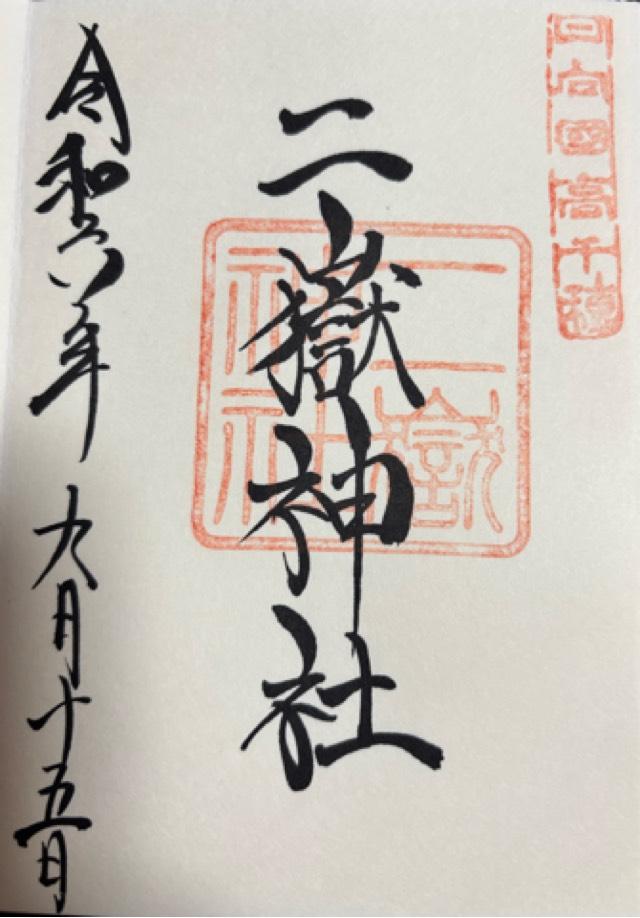 日向國高千穂
二嶽神社
二嶽神社
令和六年 九月十五日